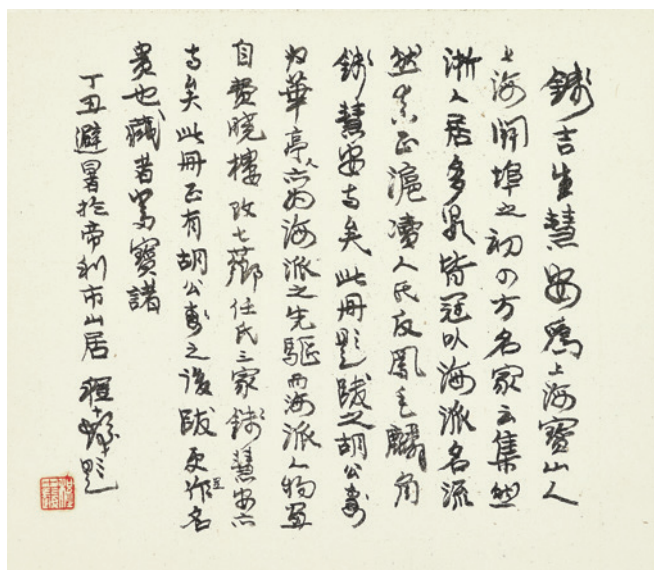 錢吉生慧安爲上海寶山人
上海開埠之初四方名家云集然
浙人居多數皆冠以海派名流
然真正滬瀆人氏反鳳毛麟角
錢慧安与矣此冊題跋之胡公壽
為華亭人亦為海派之先驅而海派人物畫
自費曉樓改七薌任氏三家錢慧安亦
与矣此冊正有胡公壽之後跋更名
貴也藏者寶諸
丁丑避暑於帝利市山居 程十髮題